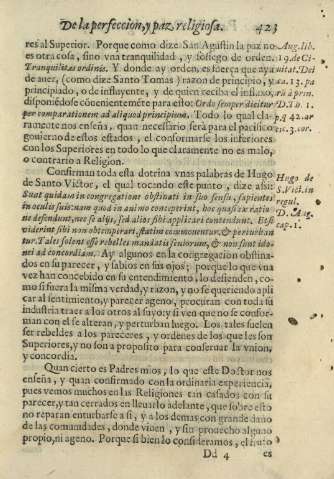 De la perfeccion, y paz religiosa. 423
res al Superior. Porque como dize San Agustin la paz no Aug. lib.
es otra cosa, sino vna tranquilidad, y sosiego de orden. 19. de Ci-
Tranquilitas ordinis. Y donde ay orden, es fuerça que aya uitat. Dei
de auer, (como dize Santo Tomas) razon de principio, y ca. 13.
principiado, o de influyente, y de quien reciba el influxo,
disponiẽdose cõuenientemẽte para esto: Ordo semper dicitur D. To. 1.
per comparationem ad aliquod principium. Todo lo qual cla- p. q. 42. ar
ramente nos enseña, quan necessario será para el pacifico tic. 3. cor.
gouierno destos estados, el conformarse los inferiores
con los Superiores en todo lo que claramente no es malo,
o contrario a Religion.
Confirman toda esta dotrina vnas palabras de Hugo Hugo de
de Santo Victor, el qual tocando este punto, dize assi: S. Vict. in
Sunt quidam in congregatione obstinati in suo sensu, sapientes regul.
in oculis suis: nam quod in animo conceperint, hoc quasi ex ratio- D. Aug.
ne defendunt, nec se alijs, sed alios sibi applicari contendunt. Et si cap. 1.
viderint sibi non obtemperari, statim commouentur, & perturban
tur. Tales solent esse rebelles mandatis seniorum, & non sunt ido-
nei ad concordiam. Ay algunos en la congregacion obstina-
dos en su parecer, y sabios en sus ojos; porque lo que vna
vez han concebido en su entendimiento, lo defienden, co-
mo si fuera la misma verdad, y razon, y no se queriendo apli
car al sentimiento, y parecer ageno, procuran con toda su
industria traer a los otros al suyo; y si ven que no se confor-
man con el se alteran, y perturban luego. Los tales suelen
ser rebeldes a los pareceres, y ordenes de los que les son
Superiores, y no son a proposito para conseruar la vnion,
y concordia.
Quan cierto es Padres mios, lo que este Doctor nos
enseña, y quan confirmado con la ordinaria experiencia,
pues vemos muchos en las Religiones tan casados con su
parecer, y tan cerrados en lleuarlo adelante, que sobre esto
no reparan enturbarse a si, y a los demas con grande daño
de las comunidades, donde viuen, y sin prouecho alguno
propio, ni ageno. Porque si bien lo consideramos, el fruto
Dd 4 es